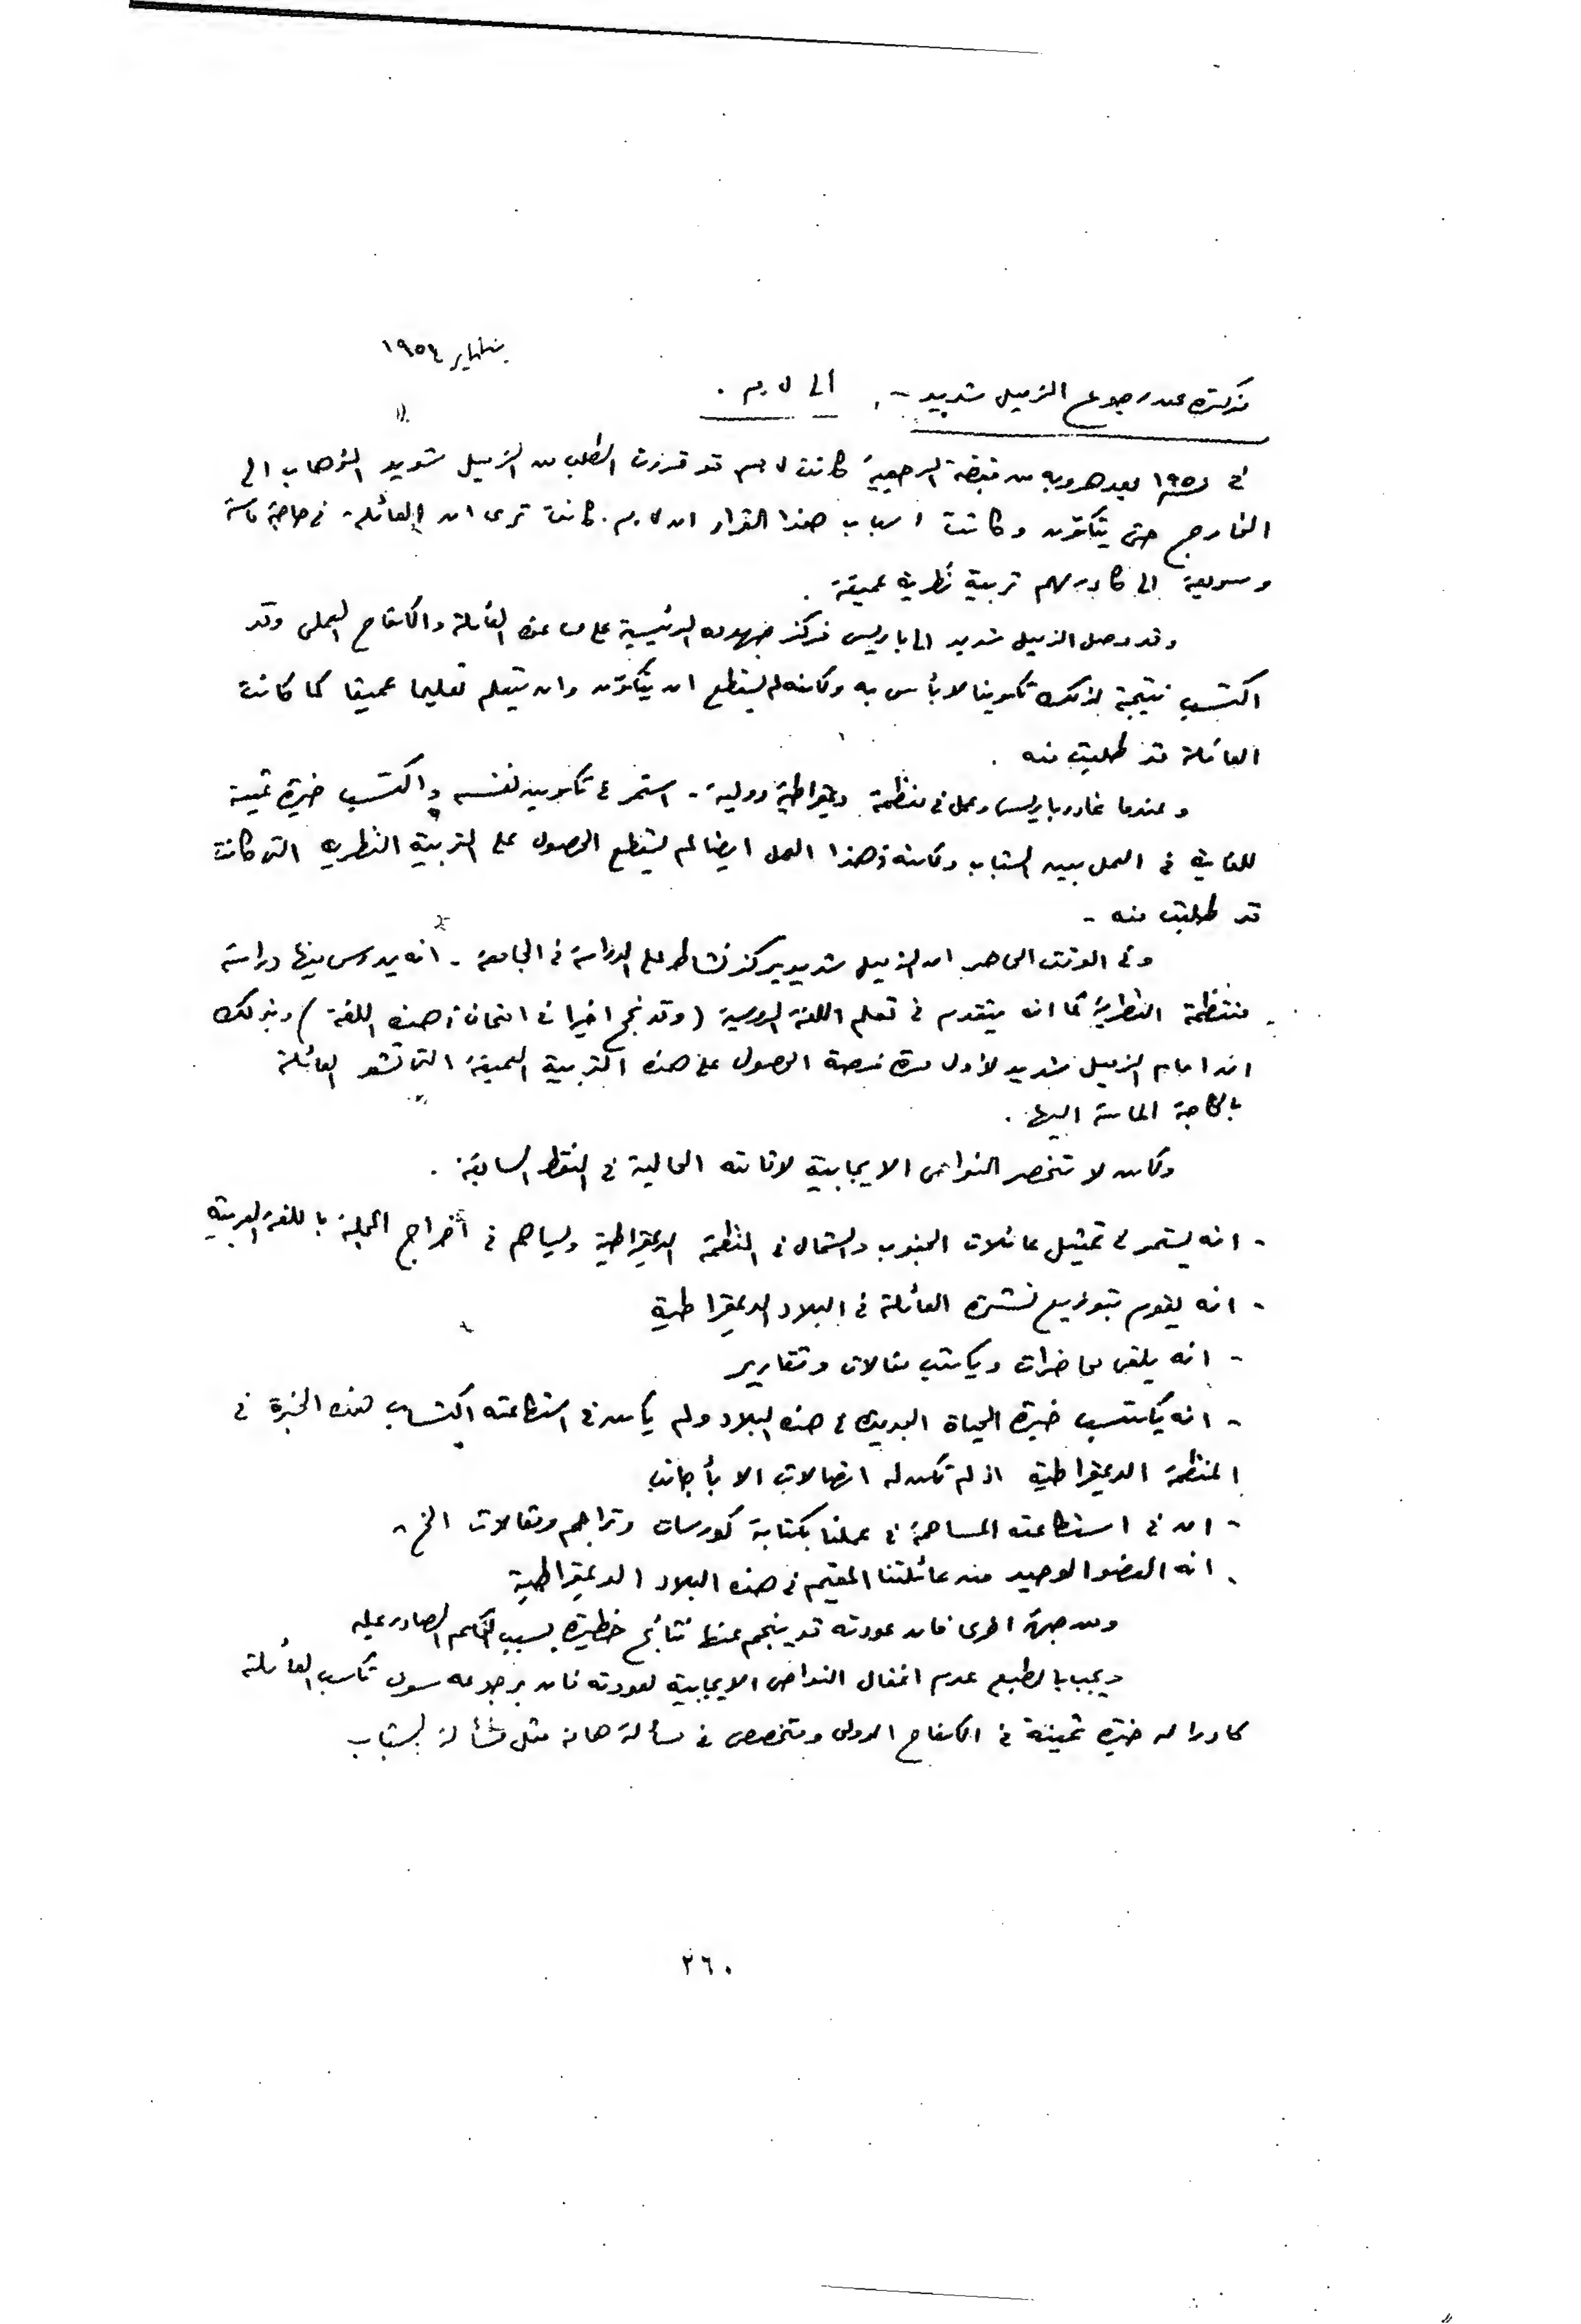 يناير ١٩٥٤
مذكرة عن رجوع الزميل شديد - الى ل.م.
في ١٩٥١ بعد هروبه من قبضة الرجعية كانت ل.م. قد قررت الطلب من الزميل شديد الذهاب الى
الخارج حتى يتكون وكانت اسباب هذا القرار ان ل.م. كانت ترى ان العائلة في حاجة ماسة
وسريعة الى كادر لهم تربية نظرية عميقة .
وقد وصل الزميل شديد الى باريس فركز جهوده الرئيسية على مساعدة العائلة والكفاح العملى وقد
اكتسب نتيجة لذلك تكوينا لا بأس به ولكنه لم يستطع ان يتكون وان يتعلم تعليما عميقا كما كانت
العائلة قد طلبت منه .
وعندما غادر باريس وعمل في منظمة ديمقراطية دولية - استمر في تكوين نفسه واكتسب خبرة ثمينة
للغاية في العمل بين الشباب ولكنه في هذا العمل ايضا لم يستطع الحصول على التربية النظرية التى كانت
قد طلبت منه -
وفى الوقت الحاضر ان الزميل شديد يركز نشاطه على الدراسة في الجامعة - انه يدرس فيها دراسة
منتظمة النظرية كما انه يتقدم في تعلم اللغة الروسية ( وقد نجح اخيرا في امتحان في هذه اللغة ) وبذلك
ان امام الزميل شديد لأول مرة فرصة الحصول على هذه التربية العميقة التى تشعر العائلة
بالحاجة الماسة اليها .
ولكن لا تنحصر النواحى الايجابية لاقامته الحالية في النقط السابقة .
- انه يستمر في تمثيل عائلات الجنوب والشمال في المنظمة الديمقراطية ويساهم في اخراج المجلة باللغة العربية
- انه يقوم بتوزيع نشرة العائلة في البلاد الديمقراطية
- انه يلقى محاضرات ويكتب مقالات وتقارير
- انه يكتسب خبرة الحياة الجديدة في هذه البلاد ولم يكن في استطاعته اكتساب هذه الخبرة في
المنظمة الديمقراطية اذ لم تكن له اتصالات الا بأجانب
- ان في استطاعته المساهمة في عملنا بكتابة كورسات وتراجم ومقالات الخ -
- انه العضو الوحيد من عائلتنا المقيم في هذه البلاد الديمقراطية
ومن جهة اخرى فان عودته قد ينجم عنها نتائج خطيرة بسبب الحكم الصادر عليه
ويجب بالطبع عدم اغفال النواحى الايجابية لعودته فان برجوعه سوف تكسب العائلة
كادرا له خبرة ثمينة في الكفاح الدولى ومتخصص في مسألة هامة مثل مسألة الشباب
٢٦٠